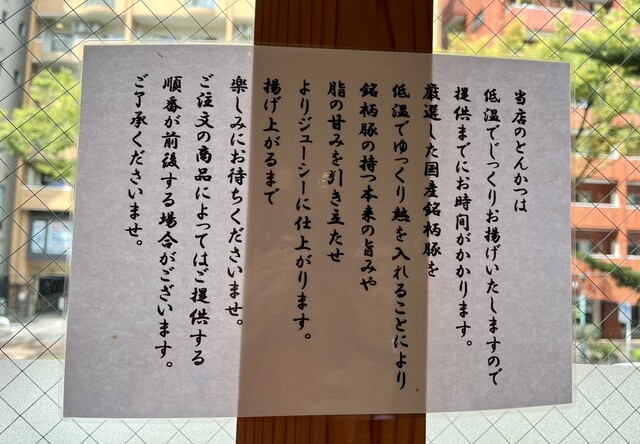 当店のとんかつは
低温でじっくりお揚げいたしますので
提供までにお時間がかかります。
厳選した国産銘柄豚を
低温でゆっくり熱を入れることにより
銘柄豚の持つ本来の旨みや
脂の甘みを引き立たせ
よりジューシーに仕上がります。
揚げ上がるまで
楽しみにお待ちくださいませ。
ご注文の商品によってはご提供する
順番が前後する場合がございます。
ご了承くださいませ。